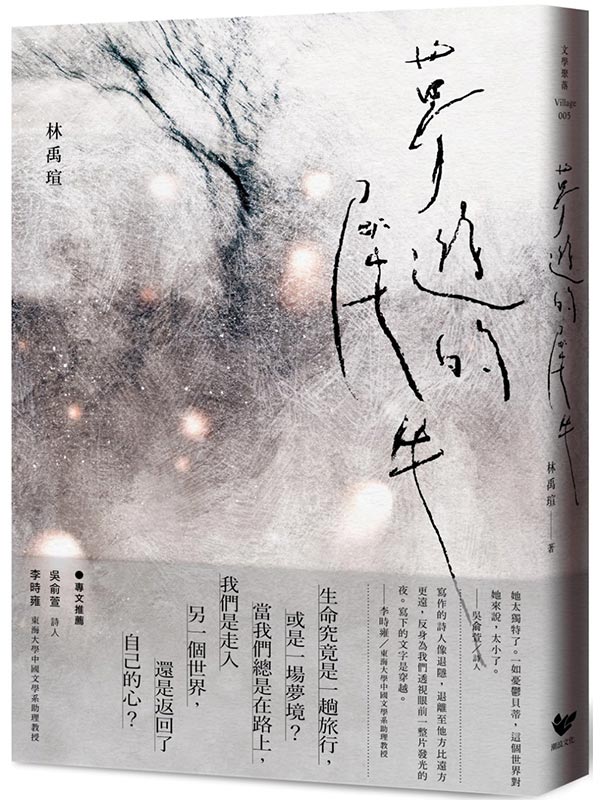 林禹瑄
夢遊的
犀牛
生命究竟是一趟旅行，
或是一場夢境？
當我們總是在路上，
我們是走入
另一個世界，
還是返回了
自己的心？
●專文推薦
吳俞萱 詩人
李時雍 東海大學中國文學系助理教授
文學聚落
Village
005
夢遊的犀牛
林禹瑄——著
她太獨特了。一如憂鬱貝蒂，這個世界對
她來說，太小了。
——吳俞萱／詩人
寫作的詩人像退隱，退離至他方比遠方
更遠，反身為我們透視眼前一整片發光的
夜。寫下的文字是穿越。
——李時雍／東海大學中國文學系助理教授
潮浪文化